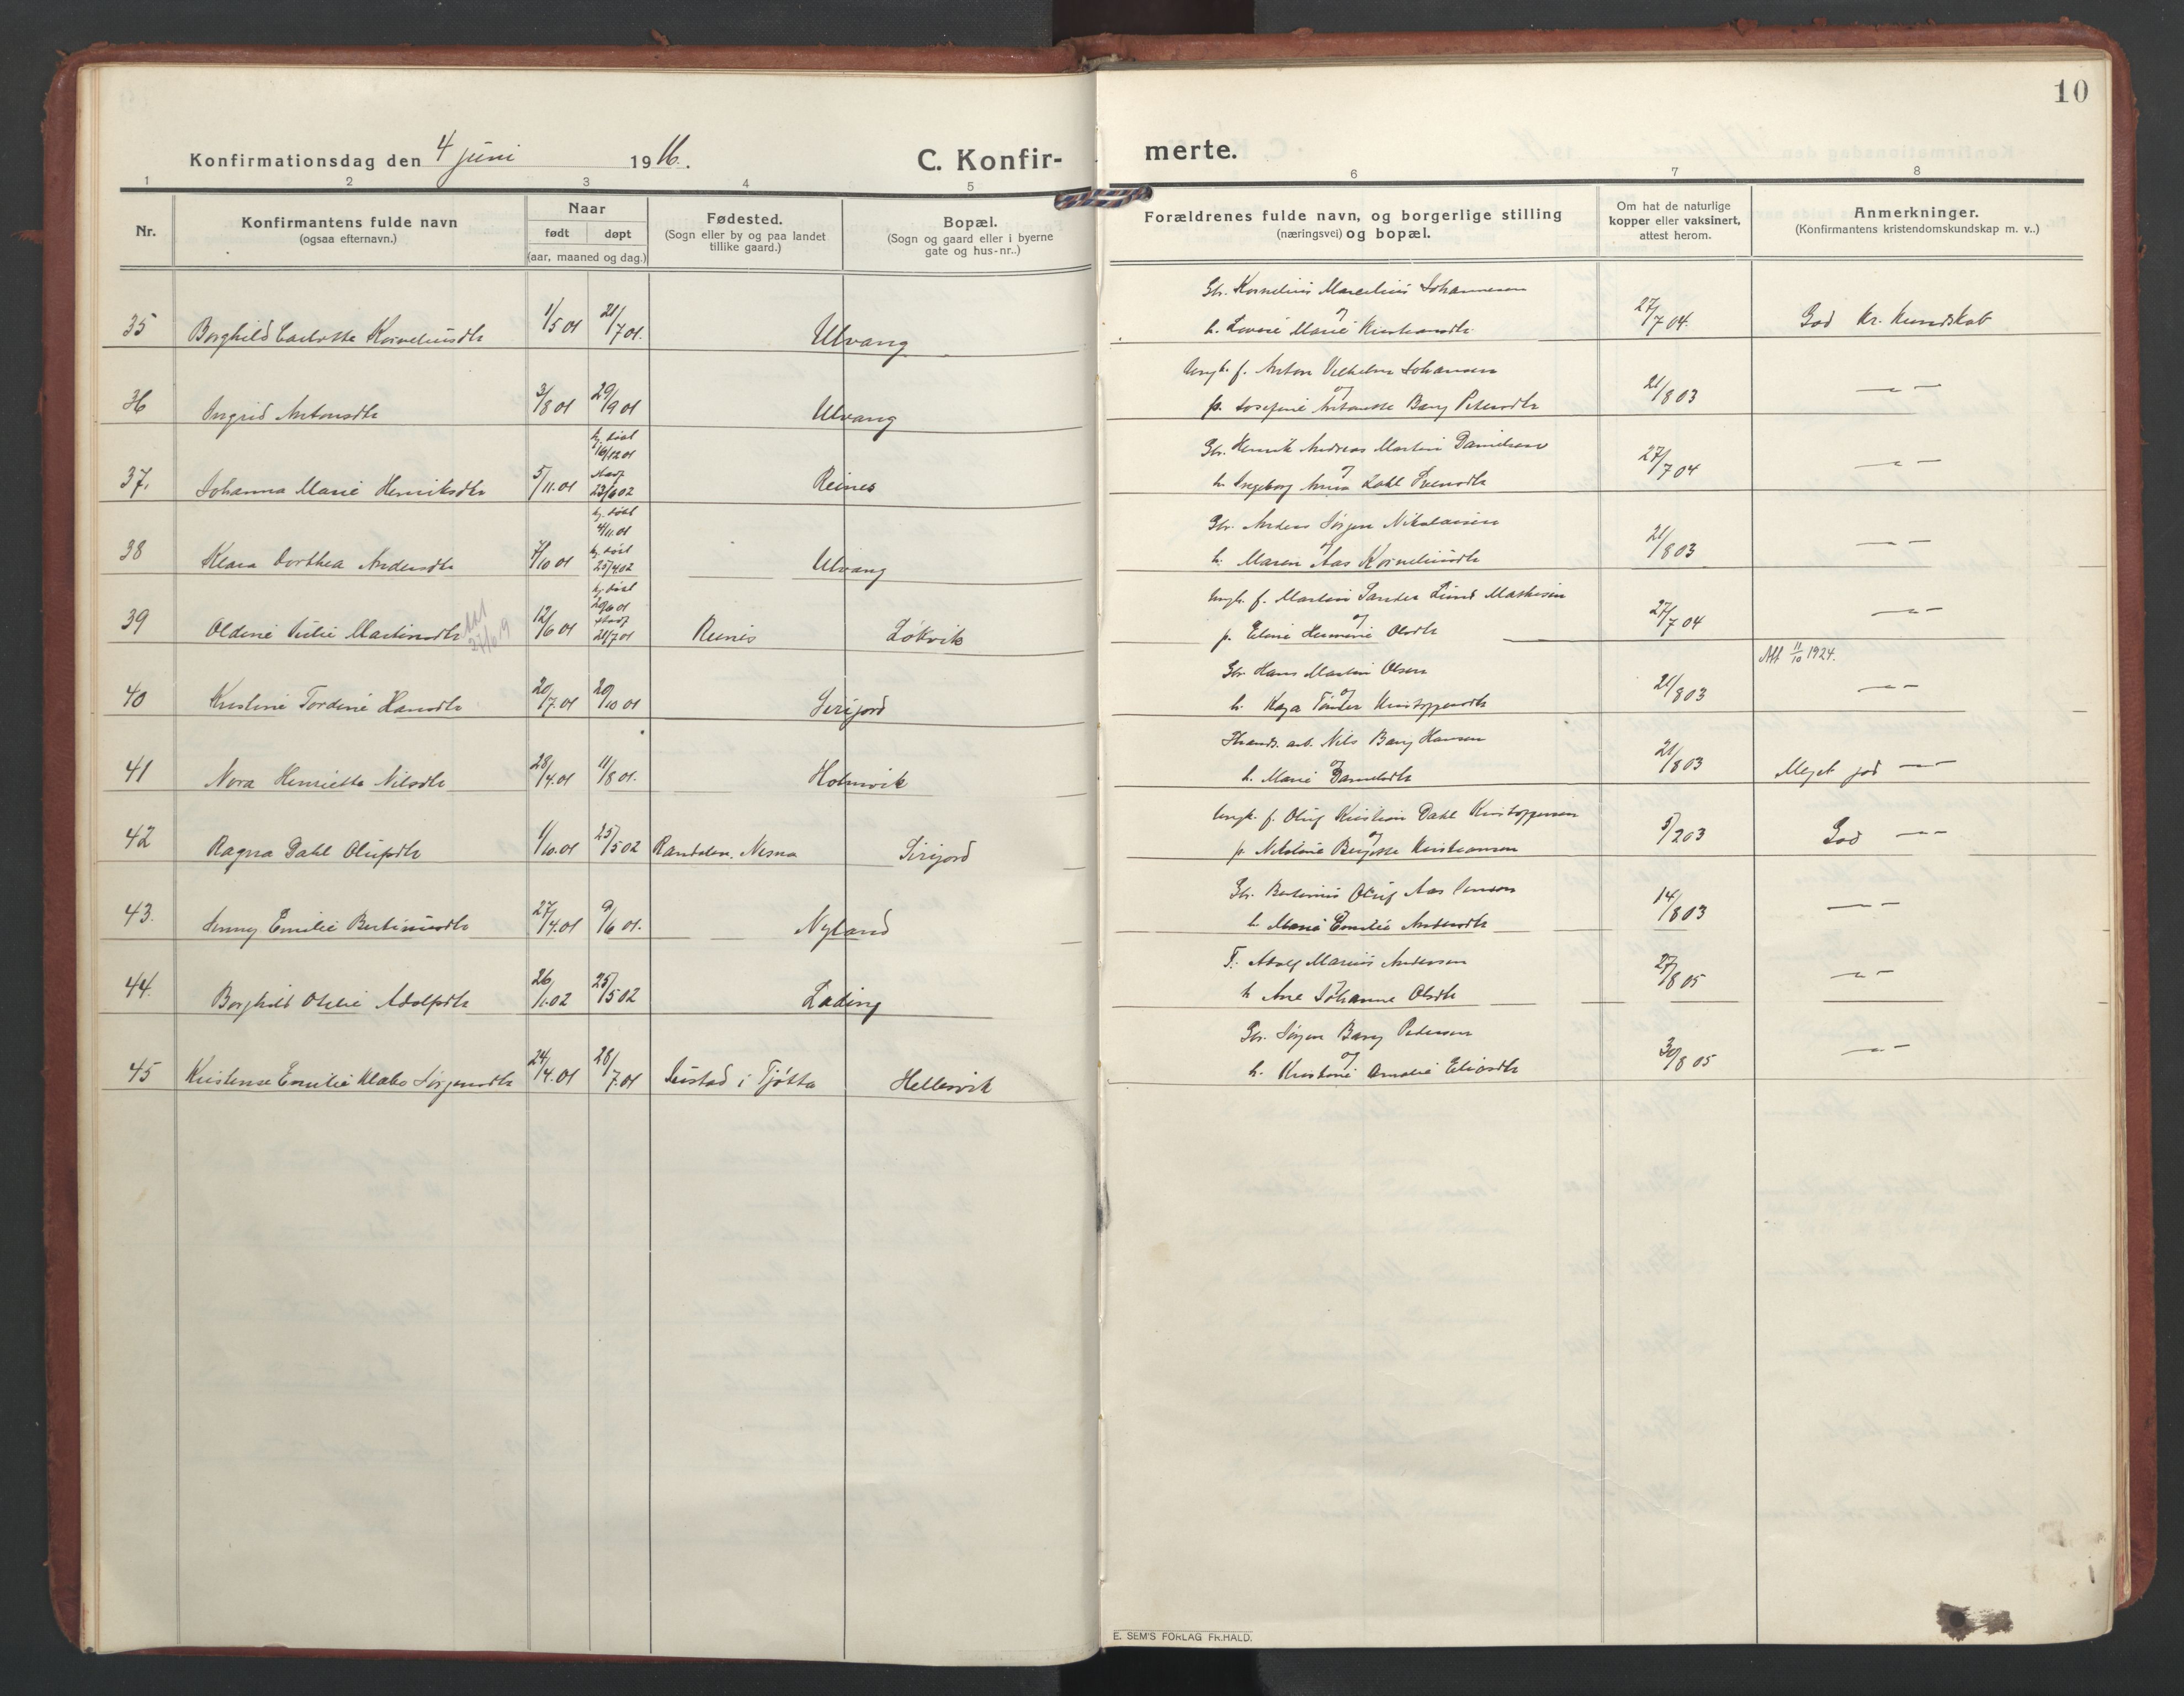 10
Konfirmationsdag den 4 juni 1916.
C. Konfir-
merte.
1 2 3 4 5 6 7 8
Nr.
Konfirmantens fulde navn
(ogsaa efternavn.)
Naar
født døpt
(aar, maaned og dag.)
Fødested.
(Sogn eller by og paa landet
tillike gaard.)
Bopæl.
(Sogn og gaard eller i byerne
gate og hus-nr..)
Forældrenes fulde navn, og borgerlige stilling
(næringsvei) og bopæl.
Om hat de naturlige
kopper eller vaksinert,
attest herom.
Anmerkninger.
(Konfirmantens kristendomskundskap m. v..)
Gbr. Kornelius Marselius Johannesen
35 Borghild Charlotte Korneliusdtr 1/5 01 21/7 01. Ulvang
og
h. Lovise Marie Kristiansdtr 27/7 04. God Kr. Kundskab
Ungk. f. Anton Vilhelm Johansen
36 Ingrid Antonsdtr 3/8 01 29/9 01 Ulvang
og
p. Josefine Antonette Bang Petersdtr 21/8 03 — " —
hj. døbt
16/12 01
Gbr. Henrik Andreas Martin Danielsen
37. Johanna Marie Henriksdtr 5/11.01 stadf. 23/6 02 Reines
og
h. Ingeborg Anna Dahl 27/7 04 — " —
hj. døbt
4/11.01
Gbr. Anders Jørgen Nikolaisen
38 Klara Dorthea Andersdtr /10 01 25/4 02 Ulvang
og
h. Maren Aas Korneliusdtr 21/8 03 — " —
hj. døbt
29/6 01
Ungk. f. Martin Sander Lind Mathisen
39 Oldine Julie Martinsdtr 12/6 01 stadf. 21/7 01 Reines Løkvik
27/6 19
og
p. Eline Hermine Olsdtr 27/7 04 — " —
Att 11/10 1924.
Gbr. Hans Martin Olsen
40 Kristine Tordine Hansdtr 20/7.01 20/10 01 Sirijord
og
h. Kaja Tønder Kristoffersdtr 21/8 03 — " —
Strands. arb. Nils Bang Hansen
41 Nora Henriette Nilsdtr 28/4.01 11/8 01. Holmvik
og
h. Marie Danielsdtr 21/8 03 Meget god — " —
Ungk. f. Oluf Kristian Dahl Kristoffersen
42 Ragna Dahl Olufsdtr 1/10.01 25/5 02 Nesna Sirijord
og
p. Nikoline Bergitte Kristiansen 5/2 03 God — " —
Gbr. Bertinius Oluf Aas Jenson
43. Jenny Emilie Bertiniusdtr 27/4.01 9/6 01. Nyland
og
h. Marie Emilie Andersdtr 14/8 03 — " —
F. Adolf Marius Andersen
44. Borghild Otelie Adolfsdtr 26/1.02 25/5 02 Lading
og
h Ane Johanne Olsdtr 27/8 05 — " —
Gbr. Jørgen Bang Pedersen
45 Kristense Emilie Klabo Jørgensdtr 24/4.01 28/7.01 i Tjøtta Hellesvik
og
h. Kristine Amalie Eliasdtr 30/8 05 — " —
E. SEM'S FORLAG FR.HALD.